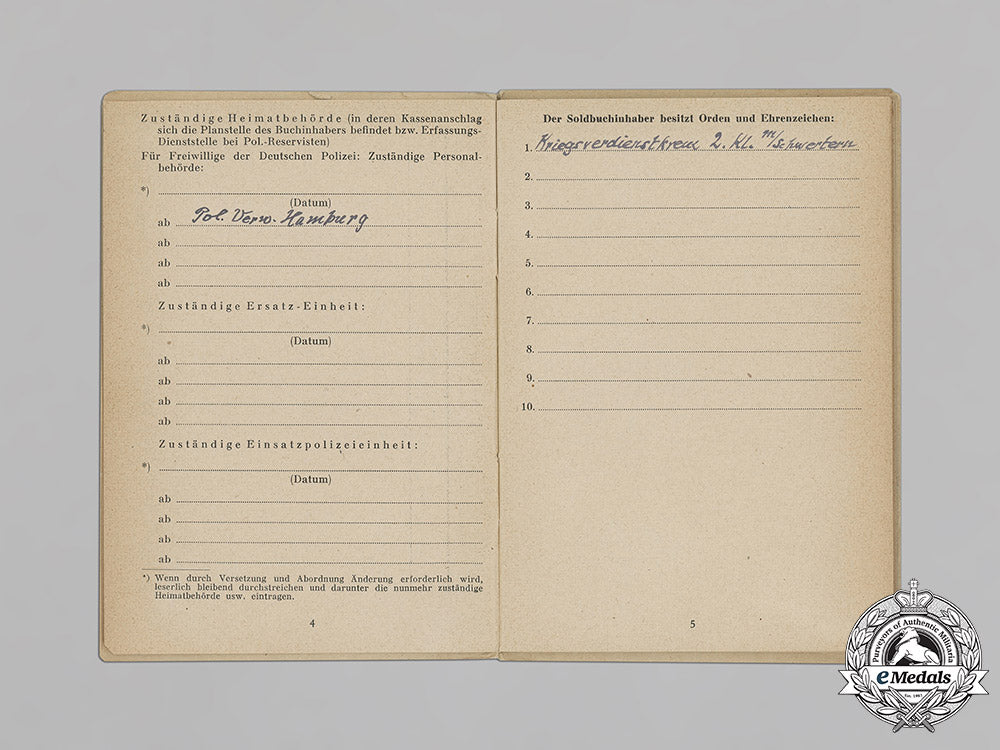 Zuständige Heimatbehörde (in deren Kassenanschlag
sich die Planstelle des Buchinhabers befindet bzw. Erfassungs-
Dienststelle bei Pol.-Reservisten)
Für Freiwillige der Deutschen Polizei: Zuständige Personal-
behörde:
*)
(Datum)
ab Pol. Verw. Hamburg
ab
ab
ab
Zuständige Ersatz-Einheit:
*)
(Datum)
ab
ab
ab
ab
Zuständige Einsatzpolizeieinheit:
*)
(Datum)
ab
ab
ab
ab
*) Wenn durch Versetzung und Abordnung Änderung erforderlich wird,
leserlich bleibend durchstreichen und darunter die nunmehr zuständige
Heimatbehörde usw. eintragen.
4
Der Soldbuchinhaber besitzt Orden und Ehrenzeichen:
1. Kriegsverdienstkreuz 2. Kl. m/Schwertern
2.
3.
4.
5.
6.
7.
8.
9.
10.
5
Purveyors of Authentic Militaria
eMedals
Est. 1967